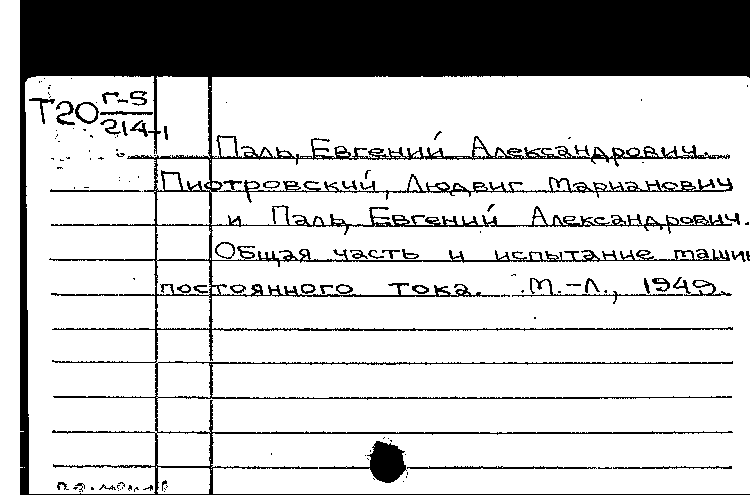 Т20 Г-5
214-1
Паль, Евгений Александрович.
Пиотровский, Людвиг Марианович
и Паль, Евгений Александрович.
Общая часть и испытание машин
постоянного тока. М.-Л., 1949.